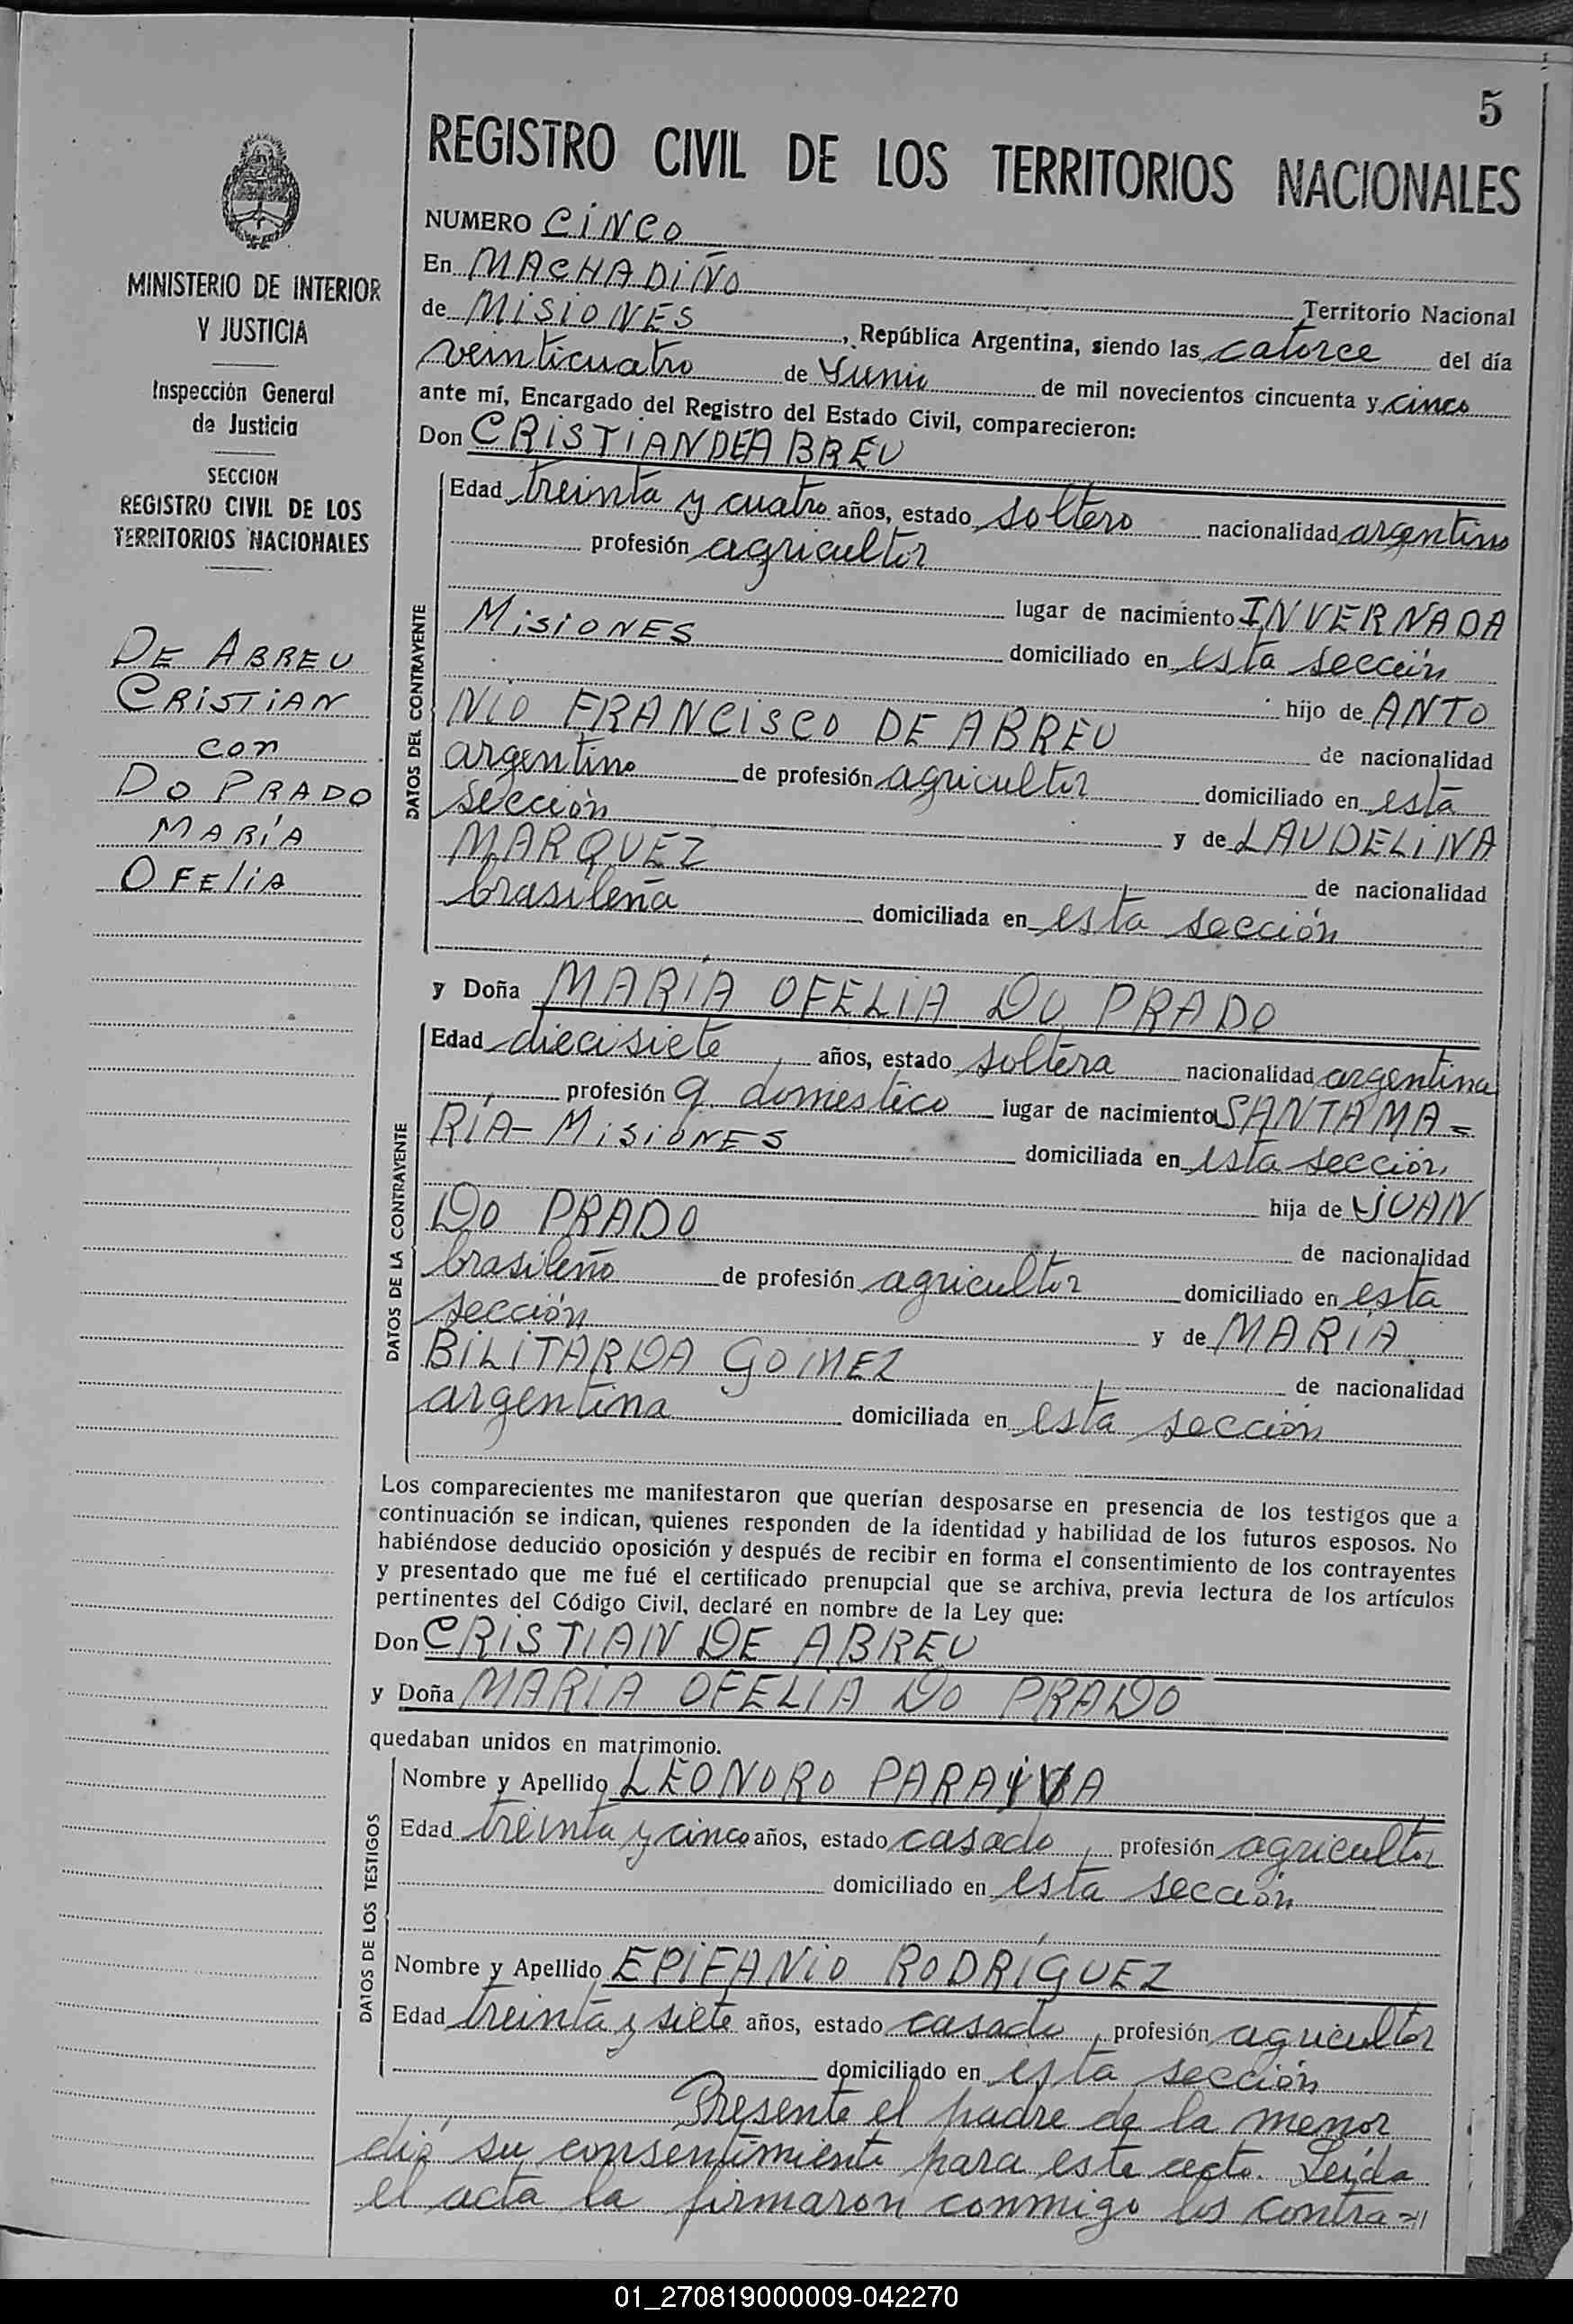 5
REGISTRO CIVIL DE LOS TERRITORIOS NACIONALES
MINISTERIO DE INTERIOR
Y JUSTICIA
Inspección General
de Justicia
SECCION
REGISTRO CIVIL DE LOS
TERRITORIOS NACIONALES
DE ABREU
CRISTIAN
con
DO PRADO
MARÍA
OFELIA
NUMERO CINCO
En MACHADIÑO
Territorio Nacional
de MISIONES, República Argentina, siendo las catorce del día
veinticuatro de Junio de mil novecientos cincuenta y cinco
ante mí, Encargado del Registro del Estado Civil, comparecieron:
Don CRISTIAN DE ABREU
DATOS DEL CONTRAYENTE
Edad treinta y cuatro años, estado soltero nacionalidad argentino
profesión agricultor
lugar de nacimiento INVERNADA
MISIONES domiciliado en esta sección
hijo de ANTO
NIO FRANCISCO DE ABREU de nacionalidad
argentino de profesión agricultor domiciliado en esta
sección y de LAUDELINA
MARQUEZ de nacionalidad
brasileña domiciliada en esta sección
y Doña MARÍA OFELIA DO PRADO
DATOS DE LA CONTRAYENTE
Edad diecisiete años, estado soltera nacionalidad argentina
profesión q. domestico lugar de nacimiento SANTA MA=
RÍA - MISIONES domiciliada en esta sección,
hija de JUAN
DO PRADO de nacionalidad
brasileño de profesión agricultor domiciliado en esta
sección y de MARÍA
BILITARDA GOMEZ de nacionalidad
argentina domiciliada en esta sección
Los comparecientes me manifestaron que querían desposarse en presencia de los testigos que a
continuación se indican, quienes responden de la identidad y habilidad de los futuros esposos. No
habiéndose deducido oposición y después de recibir en forma el consentimiento de los contrayentes
y presentado que me fué el certificado prenupcial que se archiva, previa lectura de los artículos
pertinentes del Código Civil, declaré en nombre de la Ley que:
Don CRISTIAN DE ABREU
y Doña MARÍA OFELIA DO PRADO
quedaban unidos en matrimonio.
DATOS DE LOS TESTIGOS
Nombre y Apellido LEONORO PARAIVA
Edad treinta y cinco años, estado casado, profesión agricultor
domiciliado en esta sección
Nombre y Apellido EPIFANIO RODRÍGUEZ
Edad treinta y siete años, estado casado, profesión agricultor
domiciliado en esta sección
Presente el padre de la menor
dió su consentimiento para este acto. Leída
el acta la firmaron conmigo los contra=
01_270819000009-042270